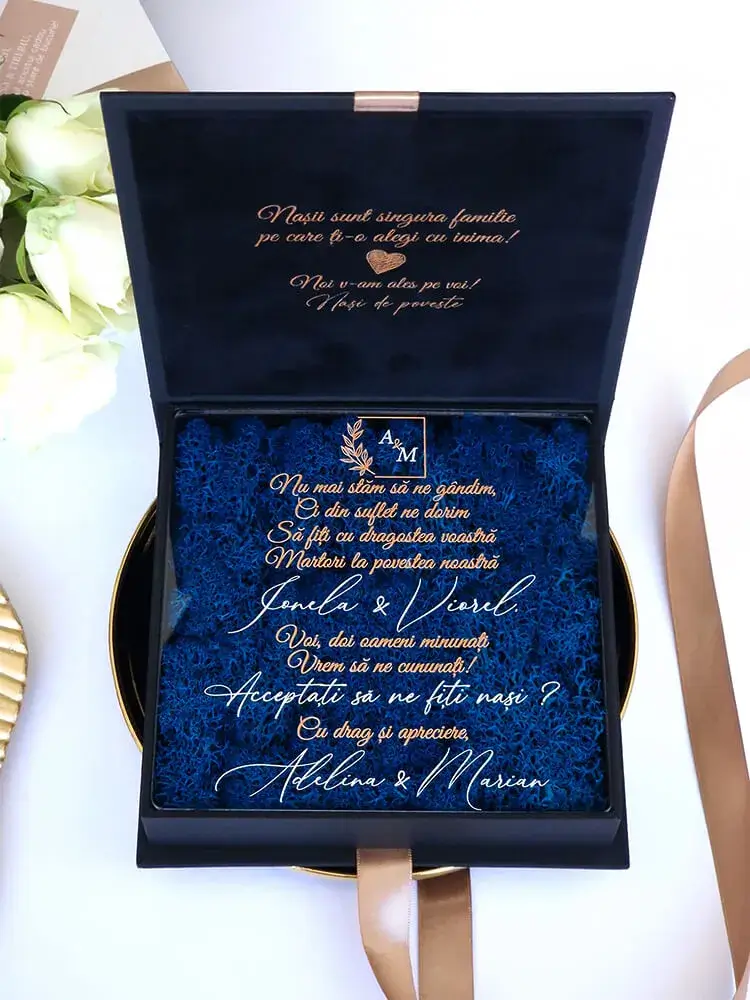 Nașii sunt singura familie
pe care ți-o alegi cu inima!
Noi v-am ales pe voi!
Nași de poveste
A&M
Nu mai stăm să ne gândim,
Ci din suflet ne dorim
Să fiți cu dragostea voastră
Martori la povestea noastră
Ionela & Viorel.
Voi, doi oameni minunați
Vrem să ne cununați!
Acceptați să ne fiti nași ?
Cu drag și apreciere,
Adelina & Marian